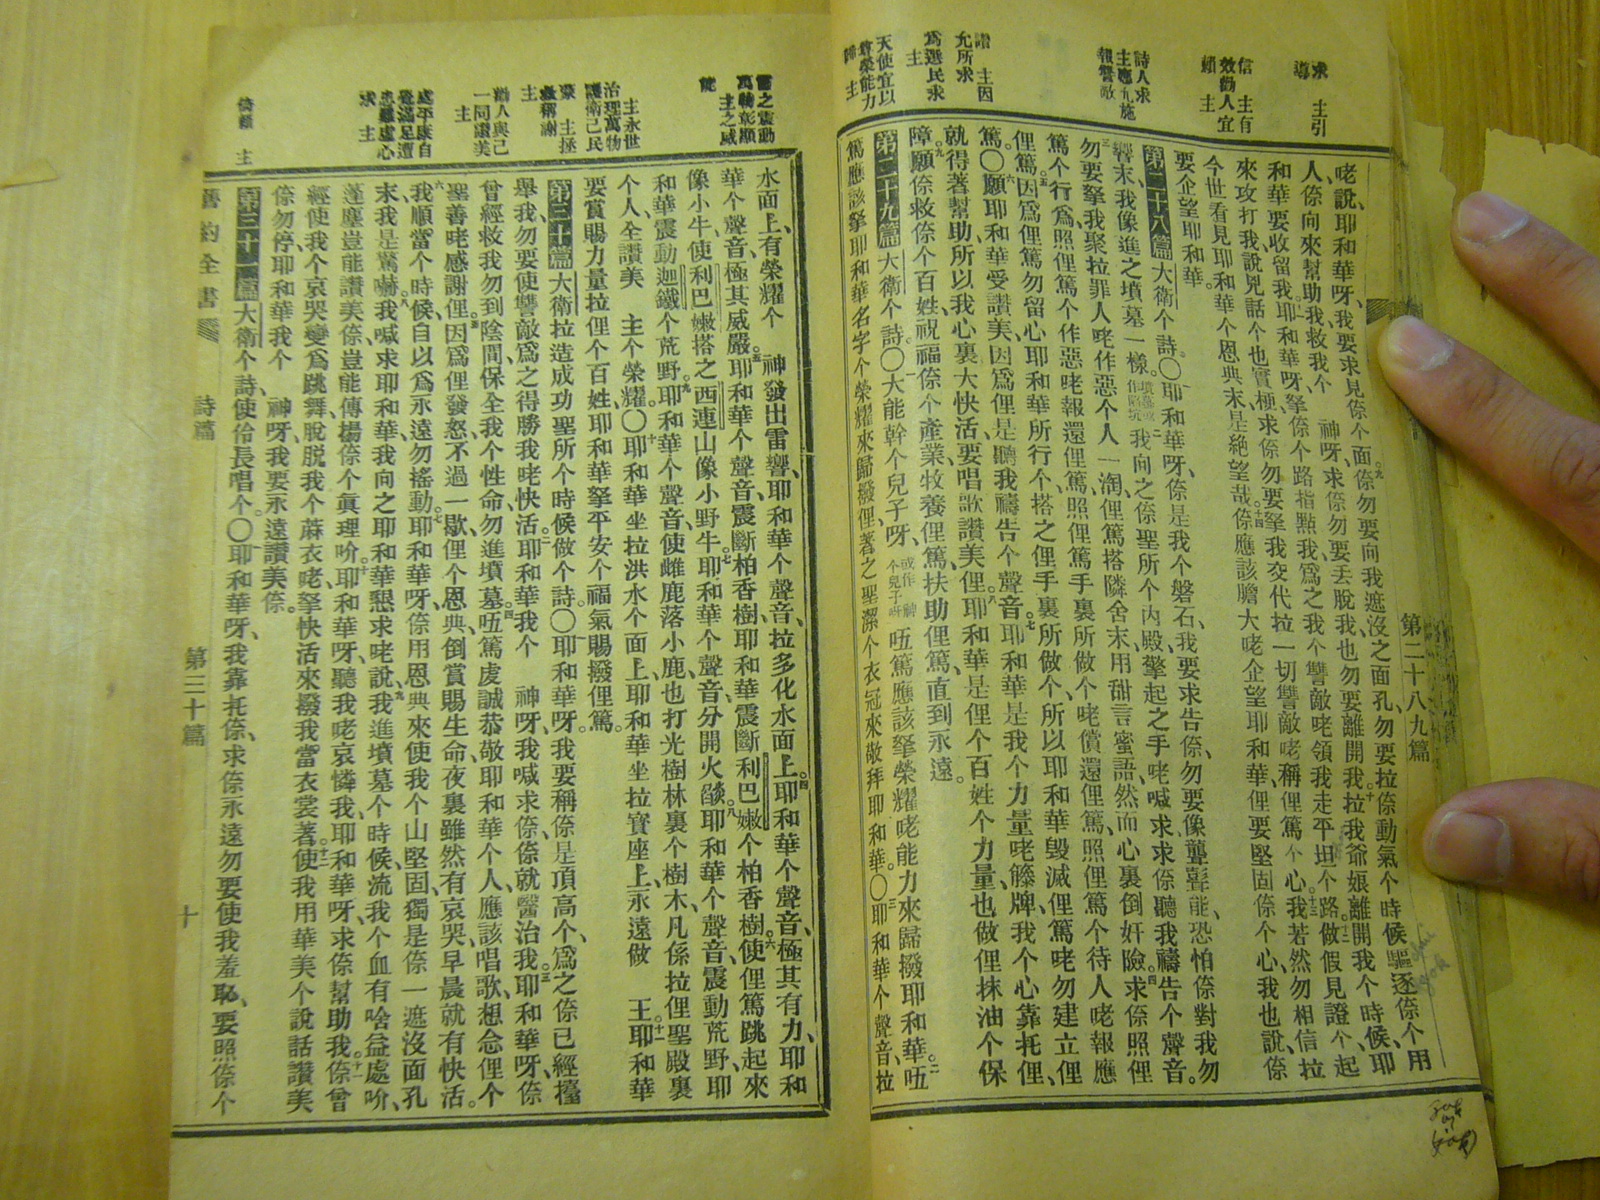 求 主引
導
信 主有
效勸人宜
賴 主
詩人求
主應允施
報讐敵
讚 主因
允所求
爲選民求
主
天使宜以
尊榮能力
歸 主
第二十八九篇
咾說、耶和華呀、我要求見倷个面。九倷勿要向我遮沒之面孔、勿要拉倷動氣个時候、驅逐倷个用
人、倷向來幫助我救我个 神呀、求倷勿要丟脫我、也勿要離開我。十拉我爺娘離開我个時候、耶
和華要收留我。十一耶和華呀、拏倷个路指點我、爲之我个讐敵咾領我走平坦个路。十二做假見證个、起
來攻打我、說兇話个也實極、求倷勿要拏我交代拉一切讐敵咾稱俚篤个心。十三我若然勿相信拉
今世看見耶和華个恩典末、是絕望哉。十四倷應該膽大咾企望耶和華、俚要堅固倷个心、我也說、倷
要企望耶和華。
第二十八篇 大衛个詩。〇一耶和華呀、倷是我个磐石、我要求告倷、勿要像聾聱能、恐怕倷對我勿
響末、我像進之墳墓一樣。墳墓或作陷坑二我向之倷聖所个內殿、擎起之手咾喊求、求倷聽我禱告个聲音。三
勿要拏我聚拉罪人咾作惡个人一淘、俚篤搭隣舍末、用甜言蜜語、然而心裏倒奸險。四求倷照俚
篤个行爲、照俚篤个作惡咾報還俚篤、照俚篤手裏所做个咾償還俚篤、照俚篤个待人咾報應
俚篤。五因爲俚篤勿留心耶和華所行个、搭之俚手裏所做个、所以耶和華毀滅俚篤咾勿建立俚
篤。〇六願耶和華受讚美、因爲俚是聽我禱告个聲音。七耶和華是我个力量咾籐牌、我个心靠托俚、
就得著幫助、所以我心裏大快活、要唱歌讚美俚。八耶和華是俚个百姓个力量、也做俚抹油个保
障。九願倷救倷个百姓、祝福倷个產業、牧養俚篤、扶助俚篤、直到永遠。
第二十九篇 大衛个詩。〇一大能幹个兒子呀、或作神个兒子呀 㑚篤應該拏榮耀咾能力來歸撥耶和華。二㑚
篤應該拏耶和華名字个榮耀來歸撥俚、著之聖潔个衣冠來敬拜耶和華。〇三耶和華个聲音、拉
雷之震動
萬物彰顯
主之威
能
主永世
治理萬物
護衛己民
榮 主拯
救稱謝
主
勸人與己
一同讚美
主
處平康自
覺滿足遭
患難虛心
求 主
倚賴 主
水面上、有榮耀个 神發出雷響、耶和華个聲音、拉多化水面上。四耶和華个聲音、極其有力、耶和
華个聲音、極其威嚴。五耶和華个聲音、震斷柏香樹、耶和華震斷利巴嫩个柏香樹。六使俚篤跳起來
像小牛、使利巴嫩搭之西連山像小野牛。七耶和華个聲音、分開火燄。八耶和華个聲音、震動荒野、耶
和華震動迦鐵个荒野。九耶和華个聲音、使雌鹿落小鹿、也打光樹林裏个樹木、凡係拉俚聖殿裏
个人、全讚美 主个榮耀。〇十耶和華坐拉洪水个面上、耶和華坐拉寶座上、永遠做 王。十一耶和華
要賞賜力量拉俚个百姓、耶和華拏平安个福氣賜撥俚篤。
第三十篇 大衛拉造成功聖所个時候做个詩。〇一耶和華呀、我要稱倷是頂高个、爲之倷已經擡
舉我、勿要使讐敵爲之得勝我咾快活。二耶和華我个 神呀、我喊求倷、倷就醫治我。三耶和華呀、倷
曾經救我勿到陰間、保全我个性命、勿進墳墓。四㑚篤虔誠恭敬耶和華个人、應該唱歌、想念俚个
聖善咾感謝俚。五因爲俚發怒、不過一歇、俚个恩典、倒賞賜生命、夜裏雖然有哀哭、早晨就有快活。
六我順當个時候、自以爲永遠勿搖動。七耶和華呀、倷用恩典來使我个山堅固、獨是倷一遮沒面孔
末、我是驚嚇。八我喊求耶和華、我向之耶和華懇求咾說、九我進墳墓个時候、流我个血有啥益處吤、
蓬塵豈能讚美倷、豈能傳揚倷个眞理吤。十耶和華呀、聽我咾哀憐我、耶和華呀、求倷幫助我。十一倷曾
經使我个哀哭變爲跳舞、脫脫我个蔴衣咾、拏快活來撥我當衣裳著。十二使我用華美个說話讚美
倷勿停、耶和華我个 神呀、我要永遠讚美倷。
第三十一篇 大衛个詩、使伶長唱个。〇一耶和華呀、我靠托倷、求倷永遠勿要使我羞恥、要照倷个
舊約全書 詩篇 第三十篇 十